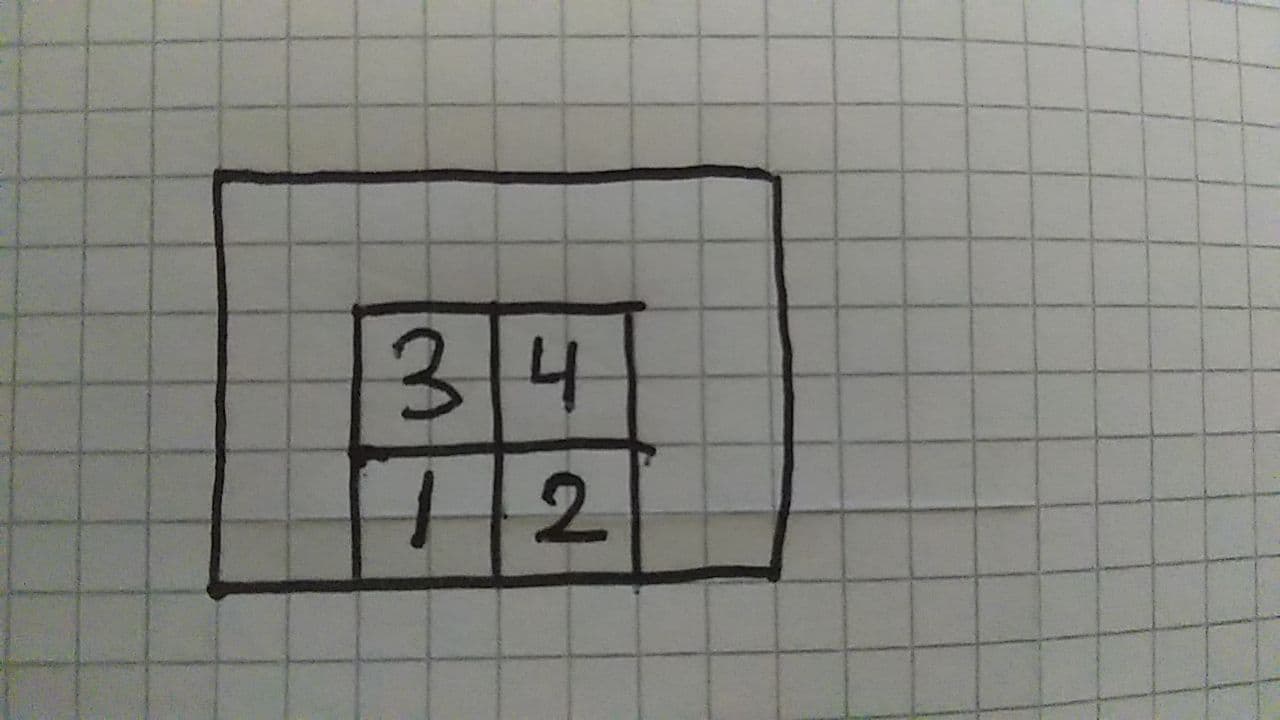 3 4
1 2